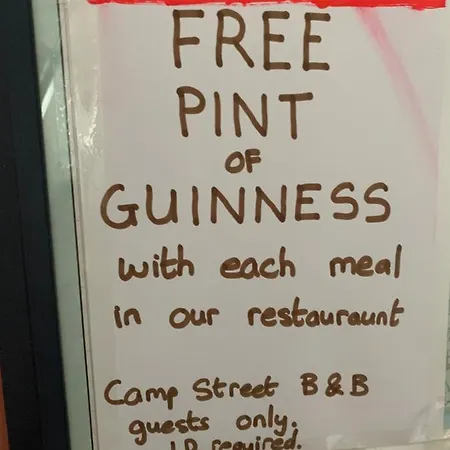 FREE
PINT
OF
GUINNESS
with each meal
in our restauraunt
Camp Street B & B
guests only.
I.D required.